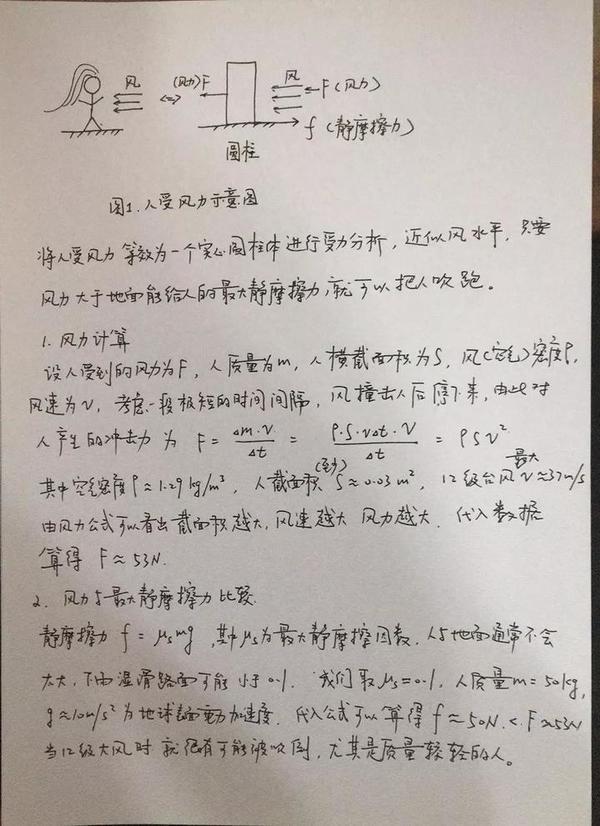 风 (风力)F 风 F(风力)
f (静摩擦力)
圆柱
图1.人受风力示意图
将人受风力等效为一个实心圆柱体进行受力分析，近似风水平，只要
风力大于地面能给人的最大静摩擦力，就可以把人吹跑。
1. 风力计算
设人受到的风力为F，人质量为m，人横截面积为S，风(空气)密度ρ，
风速为v，考虑一段极短的时间间隔，风撞击人后停下来，由此对
人产生的冲击力为 F = Δm·v/Δt = ρ·S·vΔt·v/Δt = ρSv²
其中空气密度ρ≈1.29kg/m³，人截面积(至少)S≈0.03m²，12级台风最大v≈37m/s
由风力公式可以看出截面积越大，风速越大 风力越大．代入数据
算得 F≈53N.
2. 风力与最大静摩擦力比较.
静摩擦力 f = μsmg，其中μs为最大静摩擦因数．人与地面通常不会
太大，下雨湿滑路面可能小于0.1．我们取μs=0.1，人质量m=50kg，
g≈10m/s²为地球表面重力加速度．代入公式可以算得f≈50N < F≈53N
当12级大风时就很有可能被吹倒，尤其是质量较轻的人。